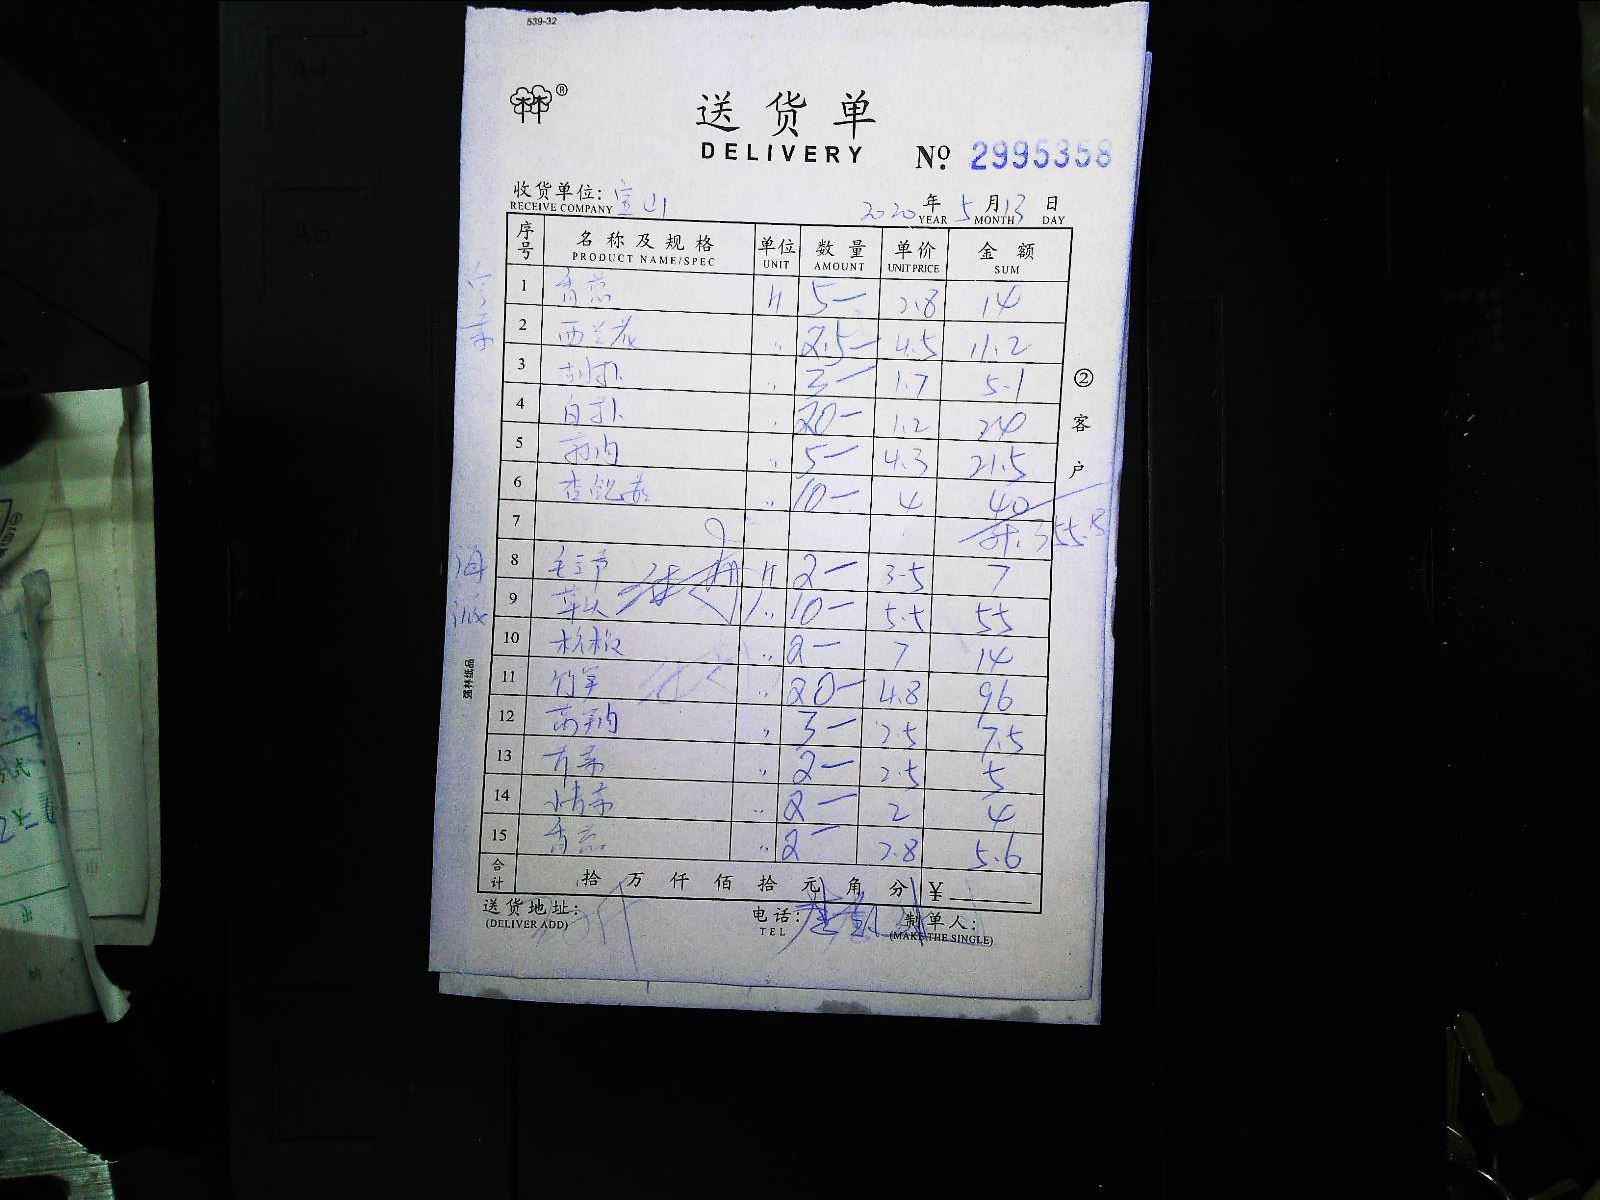 539-32
林®
送货单
DELIVERY
№ 2995358
收货单位: 宝山 2020年5月13日
RECEIVE COMPANY YEAR MONTH DAY
序号 名称及规格 单位 数量 单价 金额
PRODUCT NAME/SPEC UNIT AMOUNT UNIT PRICE SUM
1 香葱 斤 5— 2.8 14
2 西兰花 〃 2.5— 4.5 11.2
3 胡卜 〃 3— 1.7 5.1
4 白卜 〃 20— 1.2 24
5 〃 5— 4.3 21.5
6 杏鲍菇 〃 10— 4 40
7 355.8
8 毛豆节 斤 2— 3.5 7
9 草头 〃 10— 5.5 55
10 〃 2— 7 14
11 竹笋 〃 20— 4.8 96
12 莴笋 〃 3— 2.5 7.5
13 〃 2— 2.5 5
14 〃 2— 2 4
15 香葱 〃 2— 2.8 5.6
合计 拾 万 仟 佰 拾 元 角 分 ¥
送货地址: 电话: 制单人:
(DELIVER ADD) TEL (MAKE THE SINGLE)
②客户
强林纸品